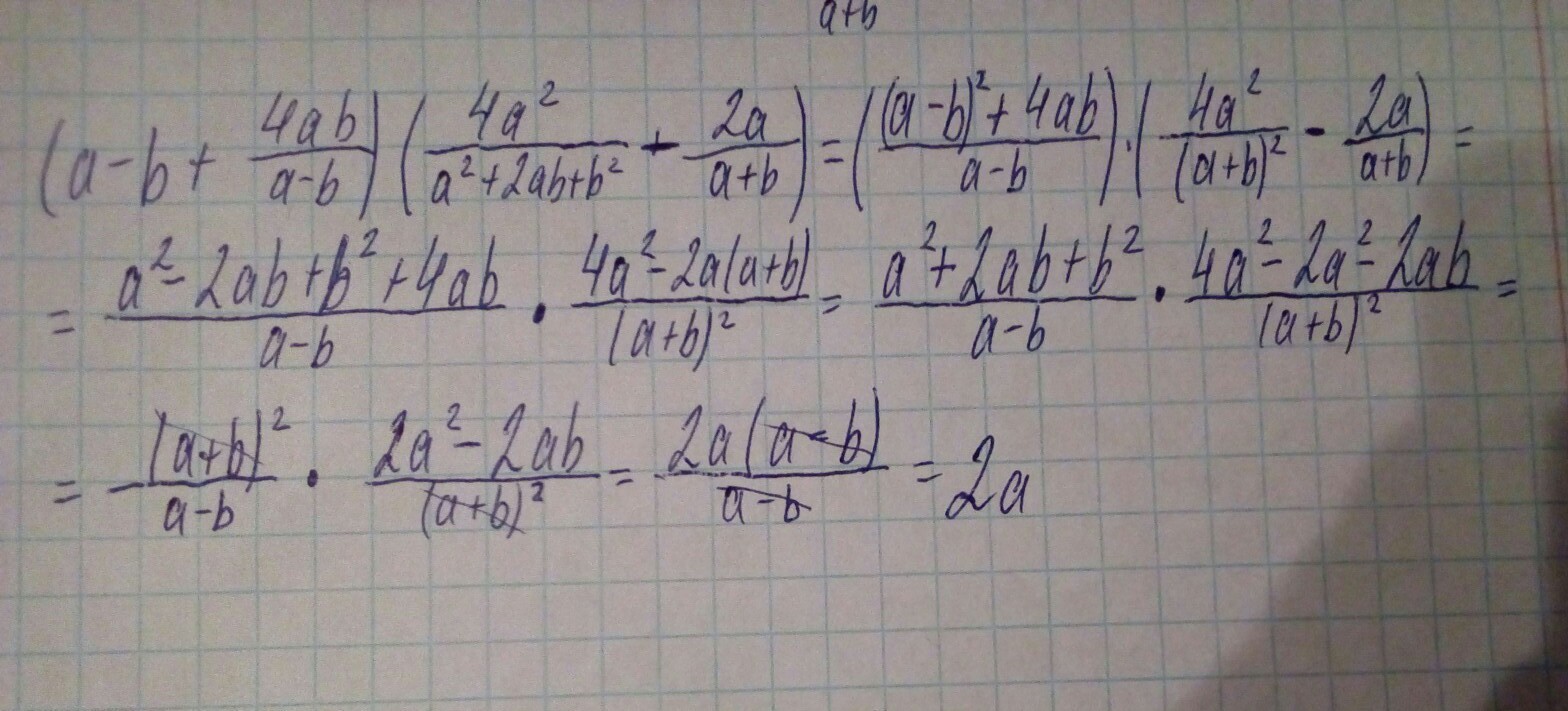 a+b
(a-b+ 4ab/(a-b)) (4a²/(a²+2ab+b²) - 2a/(a+b)) = (((a-b)²+4ab)/(a-b)) · (4a²/(a+b)² - 2a/(a+b)) =
= (a²-2ab+b²+4ab)/(a-b) · (4a²-2a(a+b))/(a+b)² = (a²+2ab+b²)/(a-b) · (4a²-2a²-2ab)/(a+b)² =
= (a+b)²/(a-b) · (2a²-2ab)/(a+b)² = 2a(a-b)/(a-b) = 2a